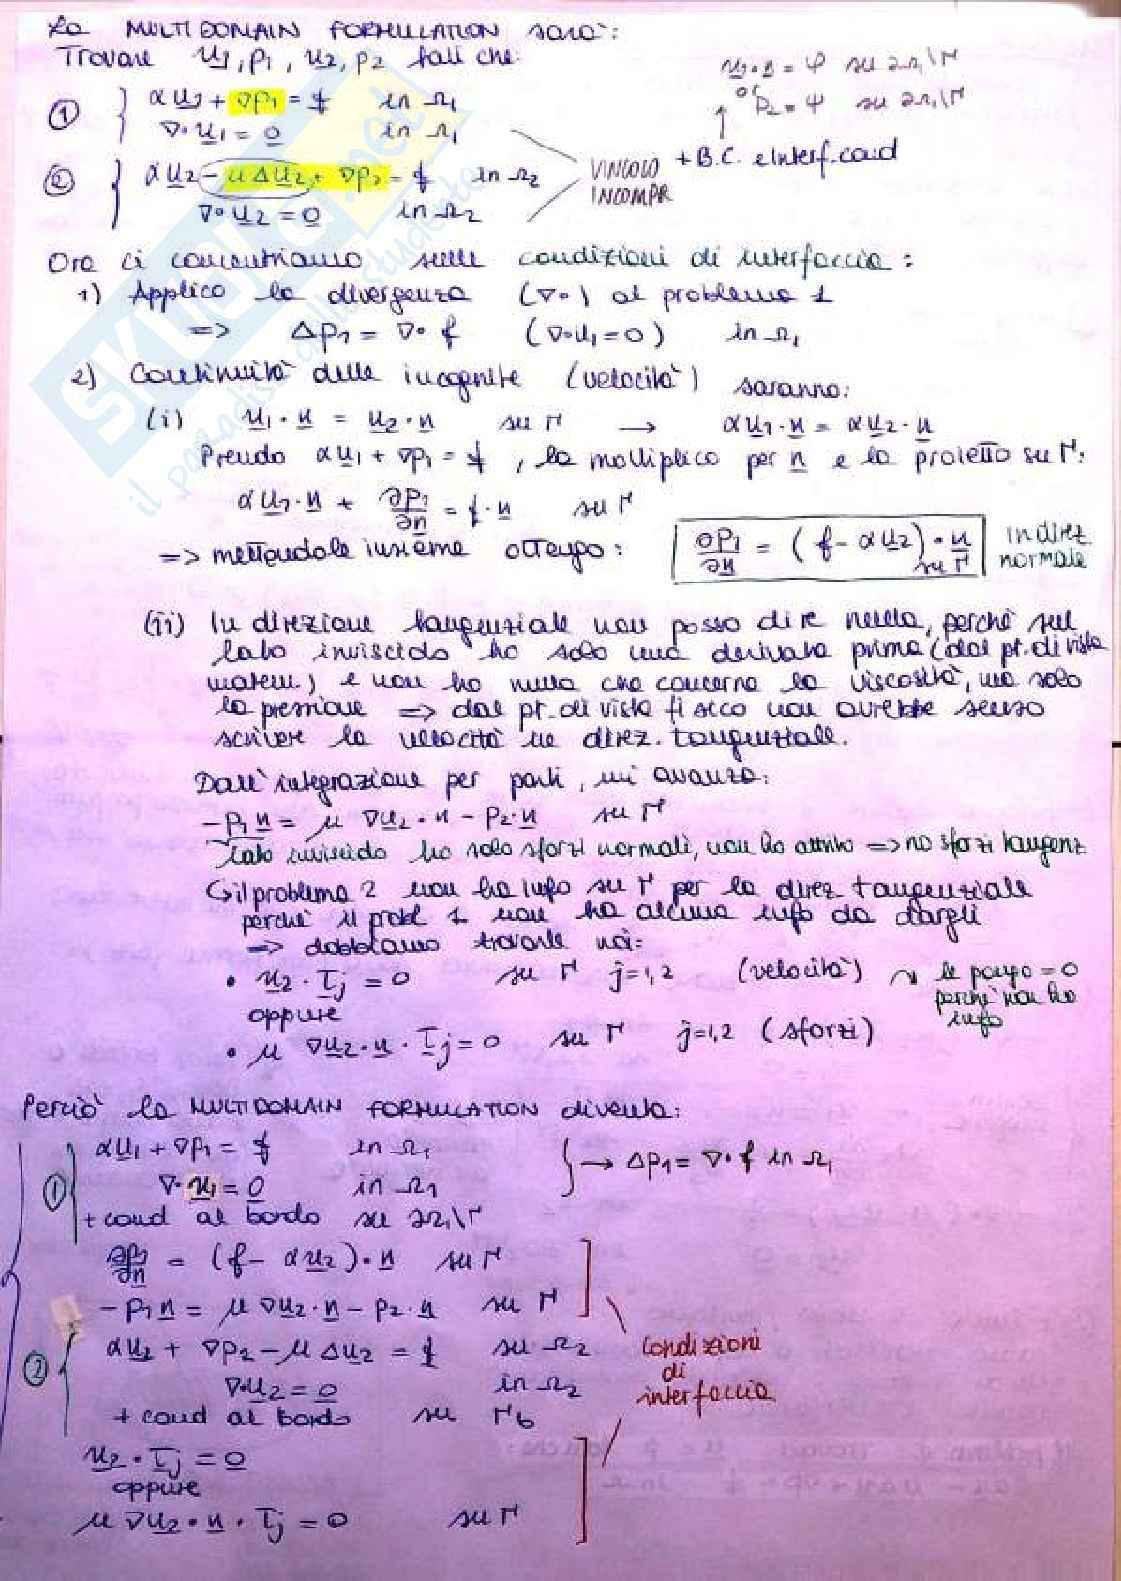 La MULTIDOMAIN FORMULATION sarà:
Trovare u1, p1, u2, p2 tali che:
u1·n = φ su ∂Ω1\Γ
or
p2 = ψ su ∂Ω1\Γ
① { αu1 + ∇p1 = f in Ω1
∇·u1 = 0 in Ω1
+ B.C. e interf. cond
VINCOLO INCOMPR
② { αu2 - μΔu2 + ∇p2 = f in Ω2
∇·u2 = 0 in Ω2
Ora ci concentriamo sulle condizioni di interfaccia:
1) Applico la divergenza (∇·) al problema 1
=> Δp1 = ∇·f (∇·u1=0) in Ω1
2) Continuità delle incognite (velocità) saranno:
(i) u1·n = u2·n su Γ → αu1·n = αu2·n
Prendo αu1 + ∇p1 = f, la moltiplico per n e la proietto su Γ:
αu1·n + ∂p1/∂n = f·n su Γ
=> mettendole insieme ottengo: ∂p1/∂n = (f - αu2)·n su Γ in direz normale
(ii) In direzione tangenziale non posso dire nulla, perchè sul
lato inviscido ho solo una derivata prima (dal pt. di vista
matem.) e non ho nulla che concerna la viscosità, ma solo
la pressione => dal pt. di vista fisico non avrebbe senso
scrivere la velocità in direz. tangenziale.
Dall'integrazione per parti, mi avanza:
-p1n = μ ∇u2·n - p2·n su Γ
lato inviscido ho solo sforzi normali, non ho attrito => no sforzi tangenz
↳ il problema 2 non ha info su Γ per la direz tangenziale
perchè il probl 1 non ha alcuna info da dargli
=> dobbiamo trovarle noi:
• u2·τj = 0 su Γ j=1,2 (velocità) ↝ le pongo = 0 perchè non ho info
oppure
• μ ∇u2·n·τj = 0 su Γ j=1,2 (sforzi)
Perciò la MULTIDOMAIN FORMULATION diventa:
① { αu1 + ∇p1 = f in Ω1 } → Δp1 = ∇·f in Ω1
∇·u1 = 0 in Ω1
+ cond al bordo su ∂Ω1\Γ
∂p1/∂n = (f - αu2)·n su Γ
-p1n = μ ∇u2·n - p2·n su Γ
② { αu2 + ∇p2 - μΔu2 = f su Ω2
∇·u2 = 0 in Ω2
+ cond al bordo su Γb
condizioni
di
interfaccia
u2·τj = 0
oppure
μ ∇u2·n·τj = 0 su Γ
SKUOLA.net
il paradiso dello studente